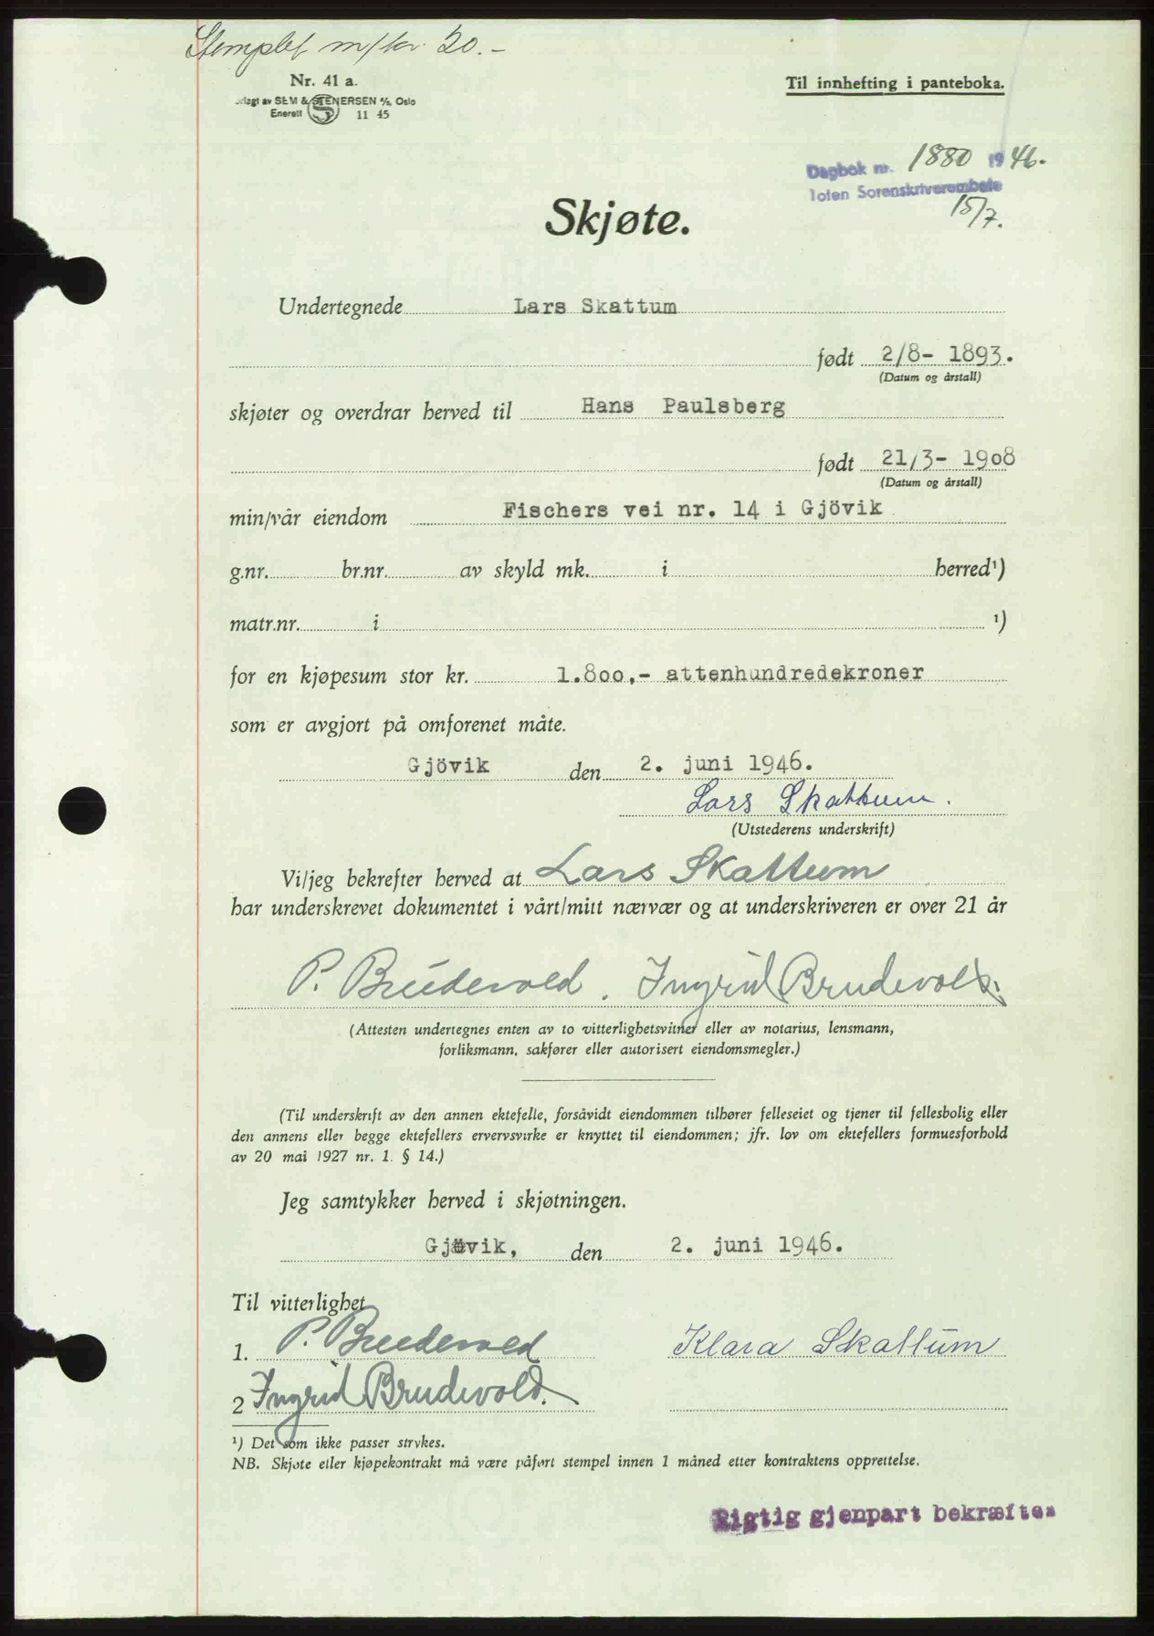 Stemplet m/kr. 20.-
Nr. 41 a.
Til innhefting i panteboka.
SEM & STENERSEN A/S, Oslo
Enerett 11 45
Dagbok nr. 1880 1946.
Toten Sorenskriverembete
15/7.
Skjøte.
Undertegnede Lars Skattum
født 2/8- 1893.
(Datum og årstall)
skjøter og overdrar herved til Hans Paulsberg
født 21/3- 1908
(Datum og årstall)
min/vår eiendom Fischers vei nr. 14 i Gjövik
g.nr. br.nr. av skyld mk. i herred¹)
matr.nr. i ¹)
for en kjøpesum stor kr. 1.800,- attenhundredekroner
som er avgjort på omforenet måte.
Gjövik den 2. juni 1946.
Lars Skattum.
(Utstederens underskrift)
Vi/jeg bekrefter herved at Lars Skattum
har underskrevet dokumentet i vårt/mitt nærvær og at underskriveren er over 21 år
P. Brudevold. Ingrid Brudevold.
(Attesten undertegnes enten av to vitterlighetsvitner eller av notarius, lensmann,
forliksmann, sakfører eller autorisert eiendomsmegler.)
(Til underskrift av den annen ektefelle, forsåvidt eiendommen tilhører felleseiet og tjener til fellesbolig eller
den annens eller begge ektefellers ervervsvirke er knyttet til eiendommen; jfr. lov om ektefellers formuesforhold
av 20 mai 1927 nr. 1. § 14.)
Jeg samtykker herved i skjøtningen.
Gjövik, den 2. juni 1946.
Til vitterlighet
1. P. Brudevold Klara Skattum
2 Ingrid Brudevold.
¹) Det som ikke passer strykes.
NB. Skjøte eller kjøpekontrakt må være påført stempel innen 1 måned etter kontraktens opprettelse.
Rigtig gjenpart bekræftes